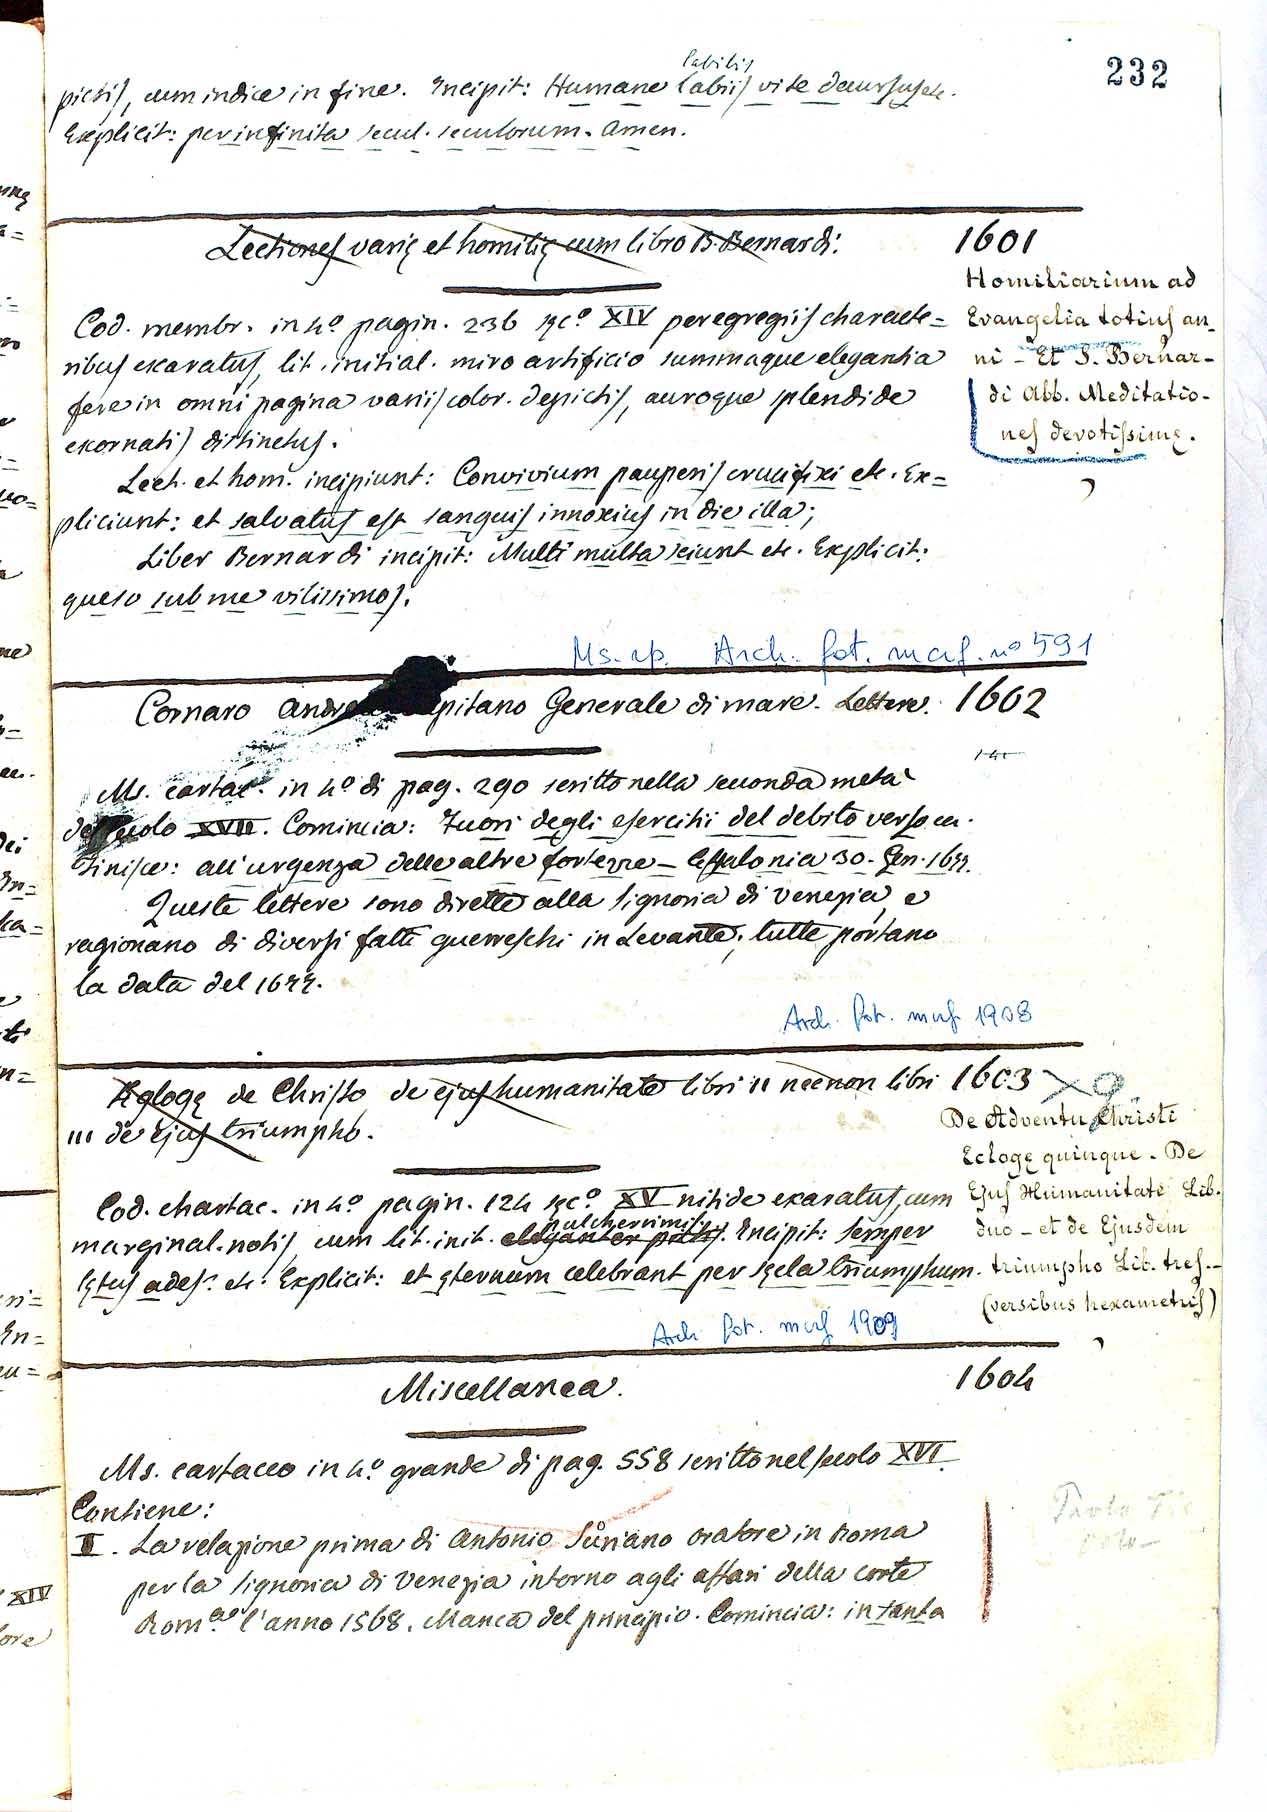 232
labilis
pictis, cum indice in fine. Incipit: Humane labiis vite decursus etc.
Explicit: per infinita secul. seculorum. Amen.
Lectiones varię et homilię cum libro B. Bernardi. 1601
Homiliarium ad
Evangelia totius an-
ni - Et S. Bernar-
di Abb. Meditatio-
nes devotissimę.
Cod. membr. in 4º pagin. 236 sęc.º XIV peregregiis characte=
ribus exaratus, lit. initial. miro artificio summaque elegantia
fere in omni pagina variis color. depictis, auroque splendide
exornatis distinctus.
Lect. et hom. incipiunt: Convivium pauperis crucifixi etc. Ex=
pliciunt: et salvatus est sanguis innoxius in die illa;
Liber Bernardi incipit: Multi multa sciunt etc. Explicit:
queso sub me vilissimos.
Ms. sp. Arch. fot. marc. nº 591
Cornaro Andrea Capitano Generale di mare. Lettere. 1602
Ms. cartac. in 4º di pag. 290 scritto nella seconda metà
del secolo XVII. Comincia: Fuori degli esercitii del debito verso ec.
Finisce: all'urgenza delle altre fortezze - Ceffalonia 30. Gen. 1699.
Queste lettere sono dirette alla Signoria di Venezia, e
ragionano di diversi fatti guerreschi in Levante; tutte portano
la data del 1699.
Arch. fot. marc 1908
Eglogę de Christo, de ejus humanitate libri II necnon libri 1603
III de Ejus triumpho.
De Adventu Christi
Eclogę quinque - De
Ejus Humanitate Lib.
duo - et de Ejusdem
triumpho Lib. tres. -
(versibus hexametris)
Cod. chartac. in 4º pagin. 124 sęc.º XV nitide exaratus, cum
pulcherrimis
marginal. notis, cum lit. init. eleganter pictis. Incipit: Semper
lętus ades. etc. Explicit: et ęternum celebrant per sęcla triumphum.
Arch. fot. marc 1909
Miscellanea. 1604
Ms. cartaceo in 4º grande di pag. 558 scritto nel secolo XVI.
Contiene:
I. La relazione prima di Antonio Suriano oratore in Roma
per la Signoria di Venezia intorno agli affari della corte
Rom.ª l'anno 1568. Manca del principio. Comincia: in tanta